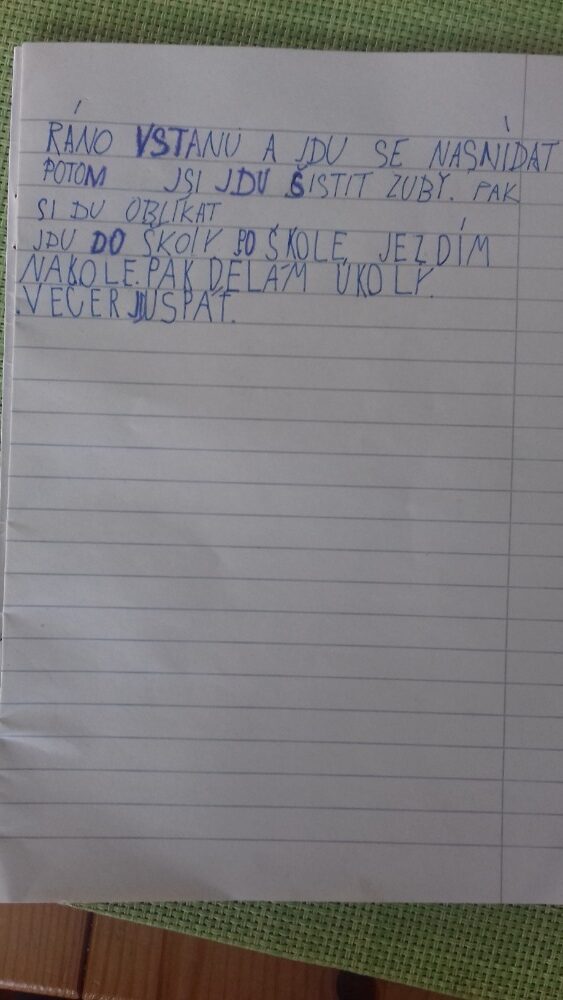 RÁNO VSTANU A JDU SE NASNÍDAT
POTOM JSI JDU ŠISTIT ZUBY. PAK
SI DU OBLÍKAT
JDU DO ŠKOLY PO ŠKOLE JEZDÍM
NAKOLE. PAK DĚLÁM ÚKOLY.
VEČER JDU SPÁT.